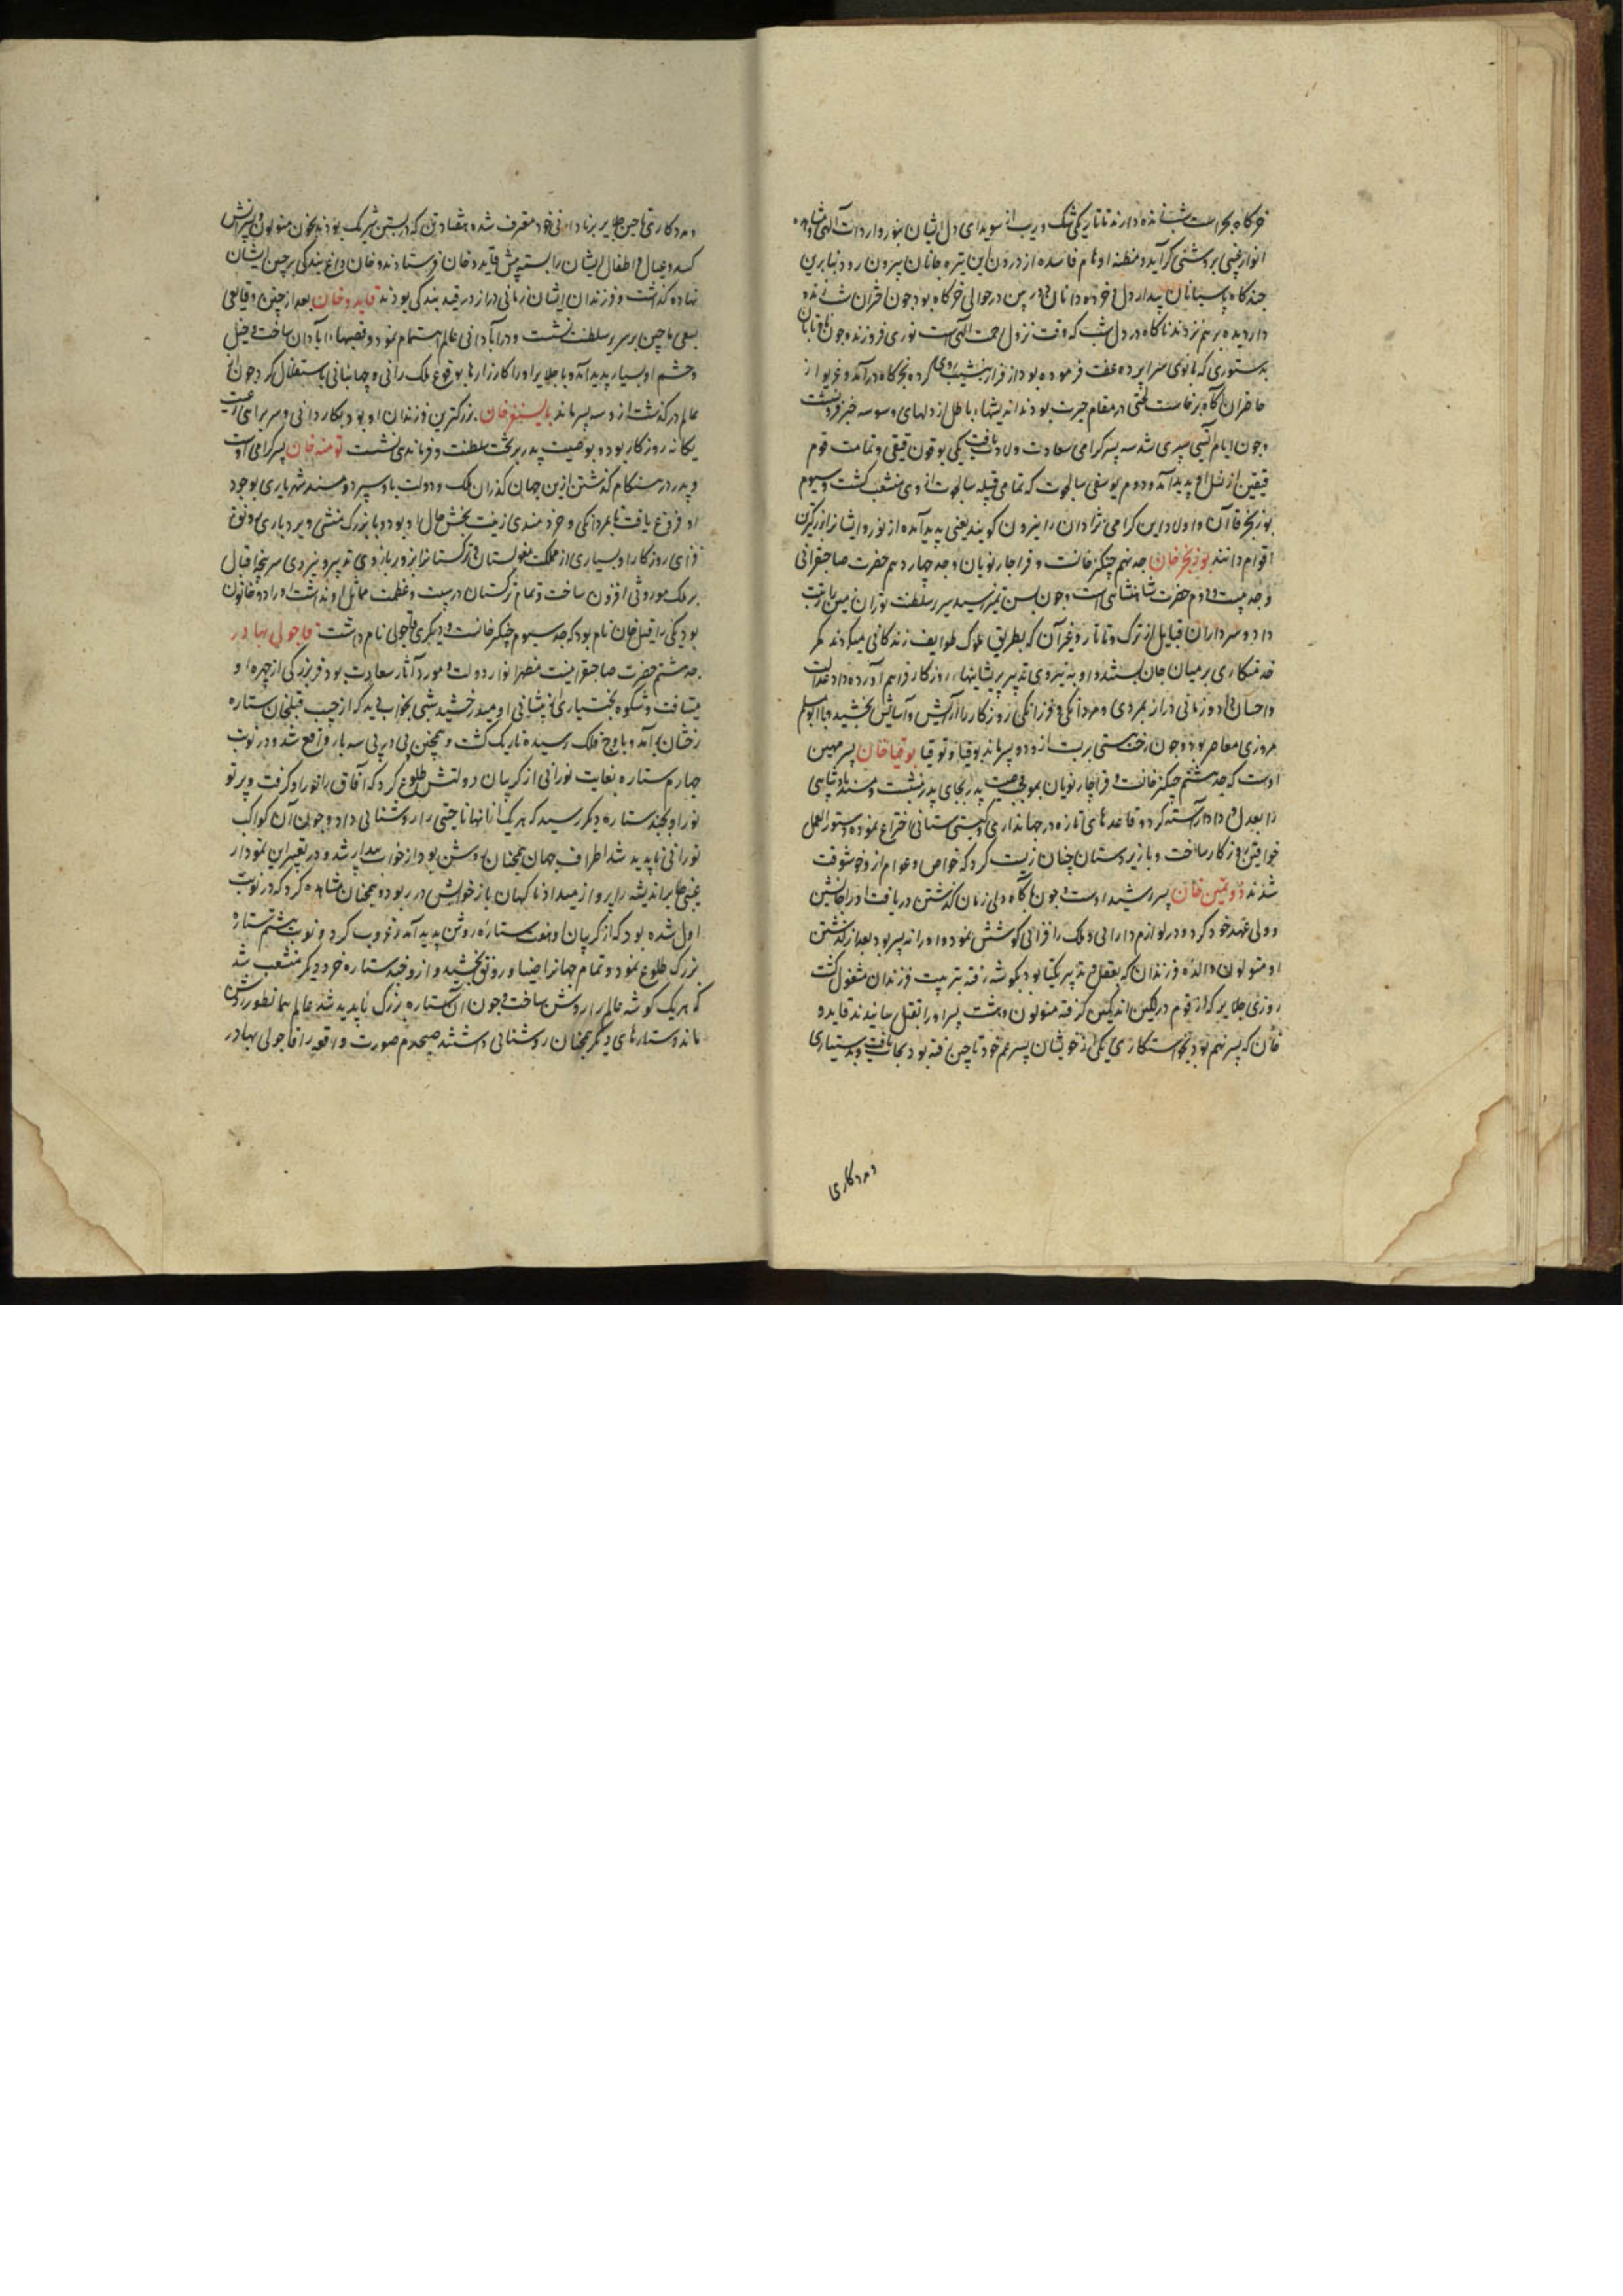 خرکاه بحراست شب زنده دارند تا تاریکی شک و ریب از سویدای دل ایشان بنور واردات آلهی و مشاهده
انوار غیبی بروشنی گراید و مظنه اوهام فاسده از درون این تیره جانان بیرون رود بنابرین
چند کاه پاسبانان بیدار دل و خرده دانان دوربین در حوالی خرکاه بود چون اختران شب زنده
دار دیده بر هم نزدند ناکاه در دل شب که وقت نزول رحمت آلهی است نوری فروزنده چون ماه تابان
بدستوری که بانوی سراپرده عفت فرموده بود از فراز بنشیب روی کرده بخرکاه درآمد و غریو از
حاضران آکاه برخاست لختی در مقام حیرت بودند اندیشهاء باطل از دلهای وسوسه خیز فرو نشست
و چون ایام آبستنی سپری شد سه پسر کرامی سعادت ولادت یافت یکی بوقون قیقی و تمامت قوم
قیقین از نسل او پدید آمد و دوم یوسفی سالجوت که تمامی قبیله سالجوت از وی منشعب کشت و سیوم
بوزنجر قاآن و اولاد این کرامی نژادان را نیرون کویند یعنی پدید آمده از نور و ایشانرا بزرکترین
اقوام دانند بوزنجر خان جد نهم چنکیز خانست و قراجار نویان و جد چهاردهم حضرت صاحبقرانی
و جد بیست و دوم حضرت شاهنشاهی است و چون بسن تمیز رسید سریر سلطنت توران زمین را زینت
داد و سرداران قبایل از ترک و تاتار و غیر آن که بطریق ملوک طوایف زندکانی میکردند کمر
خدمتکاری بر میان جان بستند و او به نیروی تدبیر پریشانیهاء روزکار فراهم آورده داد عدالت
و احسان داد و زمانی دراز بمردی و مردانکی و فرزانکی روزکار را آرایش و آسایش بخشید و با ابو مسلم
مروزی معاصر بود و چون رخت هستی بربست ازو دو پسر ماند بوقیا و توقیا بوقیا خان پسر مهین
اوست که جد هشتم چنکیز خانست و قراچار نویان بموجب وصیت پدر بجای پدر نشست و مسند پادشاهی
را بعدل و داد آراسته کرد و قاعدهای تازه در جهانداری و کیتی ستانی اختراع نموده دستور العمل
خواقین روزکار ساخت و با زیردستان چنان زیست کرد که خواص و عوام ازو خوشوقت
شدند دوتمین خان پسر رشید اوست چون آکاه دلی زمان کذشتن دریافت او را جانشین
و ولی عهد خود کرد و در لوازم دارایی و ملک افزائی کوشش نمود و او را نه پسر بود بعد از کذشتن
او متولون والده فرزندان که بعقل و تدبیر یکتا بود بکوشه رفته بتربیت فرزندان مشغول کشت
روزی جلایر که از قوم درلکین اند کمین کرفته متولون و هشت پسر او را بقتل رسانیدند قایدو
خان که پسر نهم بود بخواستکاری یکی از خویشان پسر عم خود ماچین رفته بود نجات یافت و بدستیاری
ومددکاری
ومددکاری ماچین جلایر بنادانی خود معترف شده هفتاد تن که در کشتن شریک بودند بخون متولون و پسرانش
کشته و عیال و اطفال ایشان را بسته پیش قایدو خان فرستادند و خان داغ بندکی بر جبین ایشان
نهاده کذاشت و فرزندان ایشان زمانی دراز در قید بندکی بودند قایدو خان بعد از چنین وقایعی
بسعی ماچین بر سریر سلطنت نشست و در آبادانی عالم اهتمام نمود و قصبهاء آبادان ساخت و خیل
و حشم او بسیار پدید آمد و با جلایر او را کارزارها بوقوع ملک رانی و جهانبانی باستقلال کرد چون از
عالم درکذشت ازو سه پسر ماند بایسنغر خان بزرکترین فرزندان او بود بکاردانی و سربراهی رعیت
یکانه روزکار بود و بوصیت پدر بر تخت سلطنت و فرماندهی نشست تومنه خان پسر کرامی اوست
و پدر در هنکام کذشتن ازین جهان کذران ملک و دولت باو سپرد و مسند شهریاری بوجود
او فروغ یافت بمردانکی و خردمندی زینت بخش حال او بود و با بزرک منشی و بردباری رونق
افزای روزکار او بسیاری از مملکت مغولستان و ترکستان را بزور بازوی تدبیر و نیروی سرپنجه اقبال
بر ملک موروثی افزون ساخت و تمام ترکستان در هیبت و عظمت مماثل او نداشت او را دو خاتون
بود یکی را قبل خان نام بود که جد سیوم چنکیز خانست و دیکری قاچولی نام داشت قاجولی بهادر
جد هشتم حضرت صاحبقرانیست مظهر انوار دولت و مورد آثار سعادت بود فر بزرکی از چهره او
میتافت و شکوه بختیاری از پیشانی او میدرخشید شبی بخواب دید که از جیب قبلخان ستاره
رخشان برآمد و باوج فلک رسیده تاریک کشت و همچنین پی در پی سه بار واقع شد و در نوبت
چهارم ستاره بغایت نورانی از کریبان دولتش طلوع کرد که آفاق را نور او کرفت و پرتو
نور او بچند ستاره دیکر رسید که هر یک از آنها ناحیتی را روشنائی داد و چون آن کواکب
نورانی ناپدید شد اطراف جهان همچنان روشن بود از خواب بیدار شد و در تعبیر این نمودار
غیبی طایر اندیشه را پرواز میداد ناکهان باز خوابش در ربود و همچنان مشاهده کرد که در نوبت
اول شده بود که از کریبان او هفت ستاره روشن پدید آمد و غروب کرد و نوبت هشتم ستاره
بزرک طلوع نمود و تمام جهانرا ضیا و رونق بخشید و ازو چند ستاره خرد دیکر منشعب شد
که هر یک کوشه عالم را روشن ساخت و چون آن ستاره بزرک ناپدید شد عالم همانطور روشن
ماند و ستارهای دیکر همچنان روشنائی داشتند صبحدم صورت واقعه را قاجولی بهادر